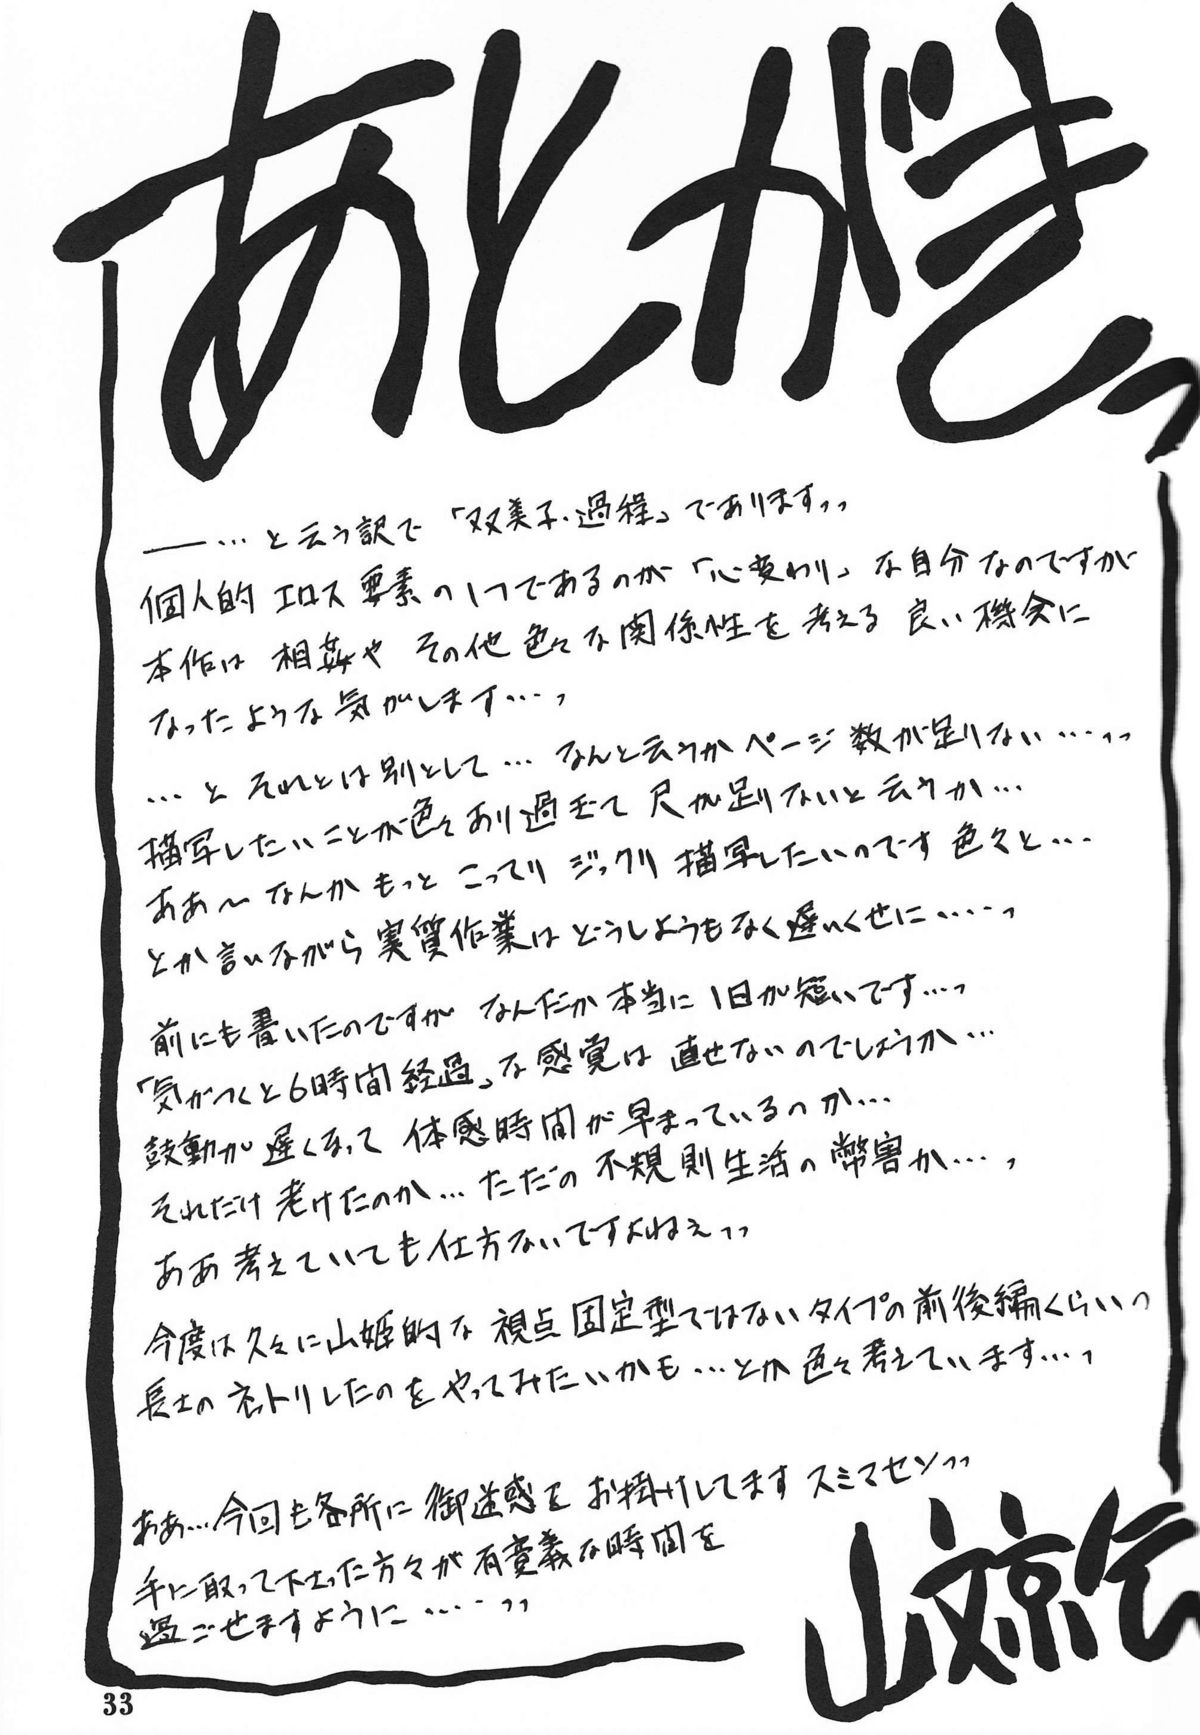 あとがきっ
――…と云う訳で「双美子・過程」でありますっっ
個人的エロス要素の1つであるのが「心変わり」な自分なのですが
本作は 相姦や その他色々な関係性を考える良い機会に
なったような気がします…っ
…と それとは別として… なんと云うかページ数が足りない……っっ
描写したいことが色々あり過ぎて 尺が足りないと云うか…
ああ〜なんか もっと こってり ジックリ 描写したいのです 色々と…
とか言いながら実質作業はどうしようもなく遅いくせに……っ
前にも書いたのですが なんだか本当に 1日が短いです…っ
「気がつくと6時間経過」な感覚は 直せないのでしょうか…
鼓動が遅くなって 体感時間が早まっているのか…
それだけ老けたのか…ただの不規則生活の弊害か…っ
ああ考えていても仕方ないですよねぇっっ
今度は久々に山姫的な 視点固定型ではないタイプの前後編くらいっ
長土の ネットリしたのをやってみたいかも…とか色々考えています…っ
ああ…今回も各所に御迷惑をお掛けしてます スミマセンっっ
手に取って下さった方々が有意義な時間を
過ごせますように……っっ
山文京伝
33